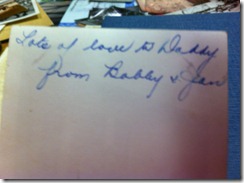 Lots of love to Daddy
from Bobby & Jean